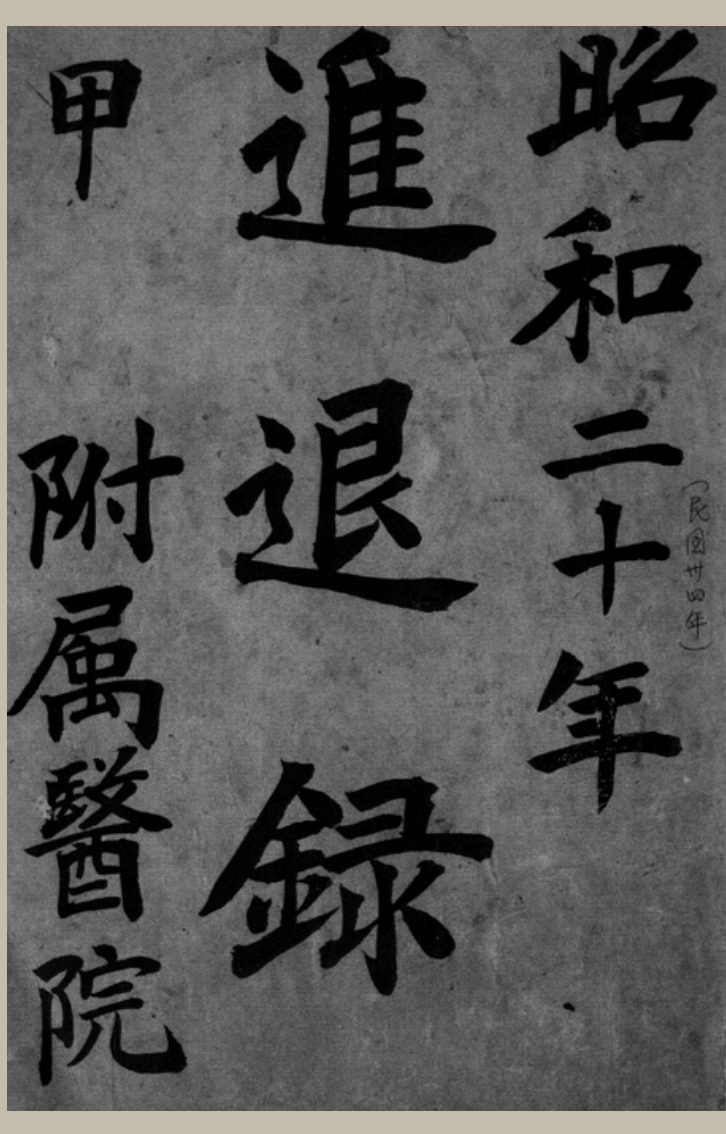 昭和二十年
(民国卅四年)
進退録
甲 附属醫院